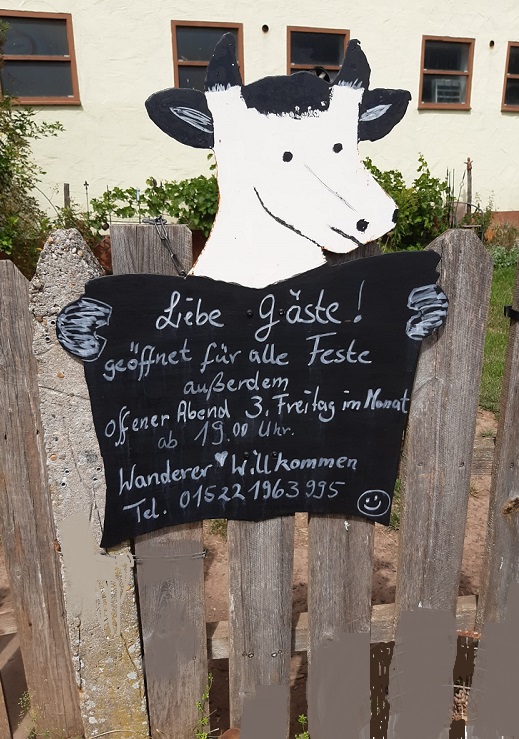 Liebe Gäste!
geöffnet für alle Feste
außerdem
Offener Abend 3. Freitag im Monat
ab 19.00 Uhr.
Wanderer ♥ Willkommen
Tel. 015221963995